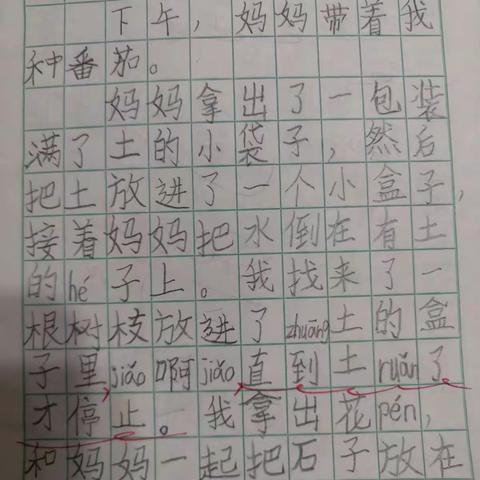 下午，妈妈带着我
种番茄。
妈妈拿出了一包装
满了土的小袋子，然后
把土放进了一个小盒子，
接着妈妈把水倒在有土
的hé子上。我找来了一
根树枝放进了zhuāng土的盒
子里，jiǎo啊jiǎo，直到土ruǎn了
才停止。我拿出花pén，
和妈妈一起把石子放在